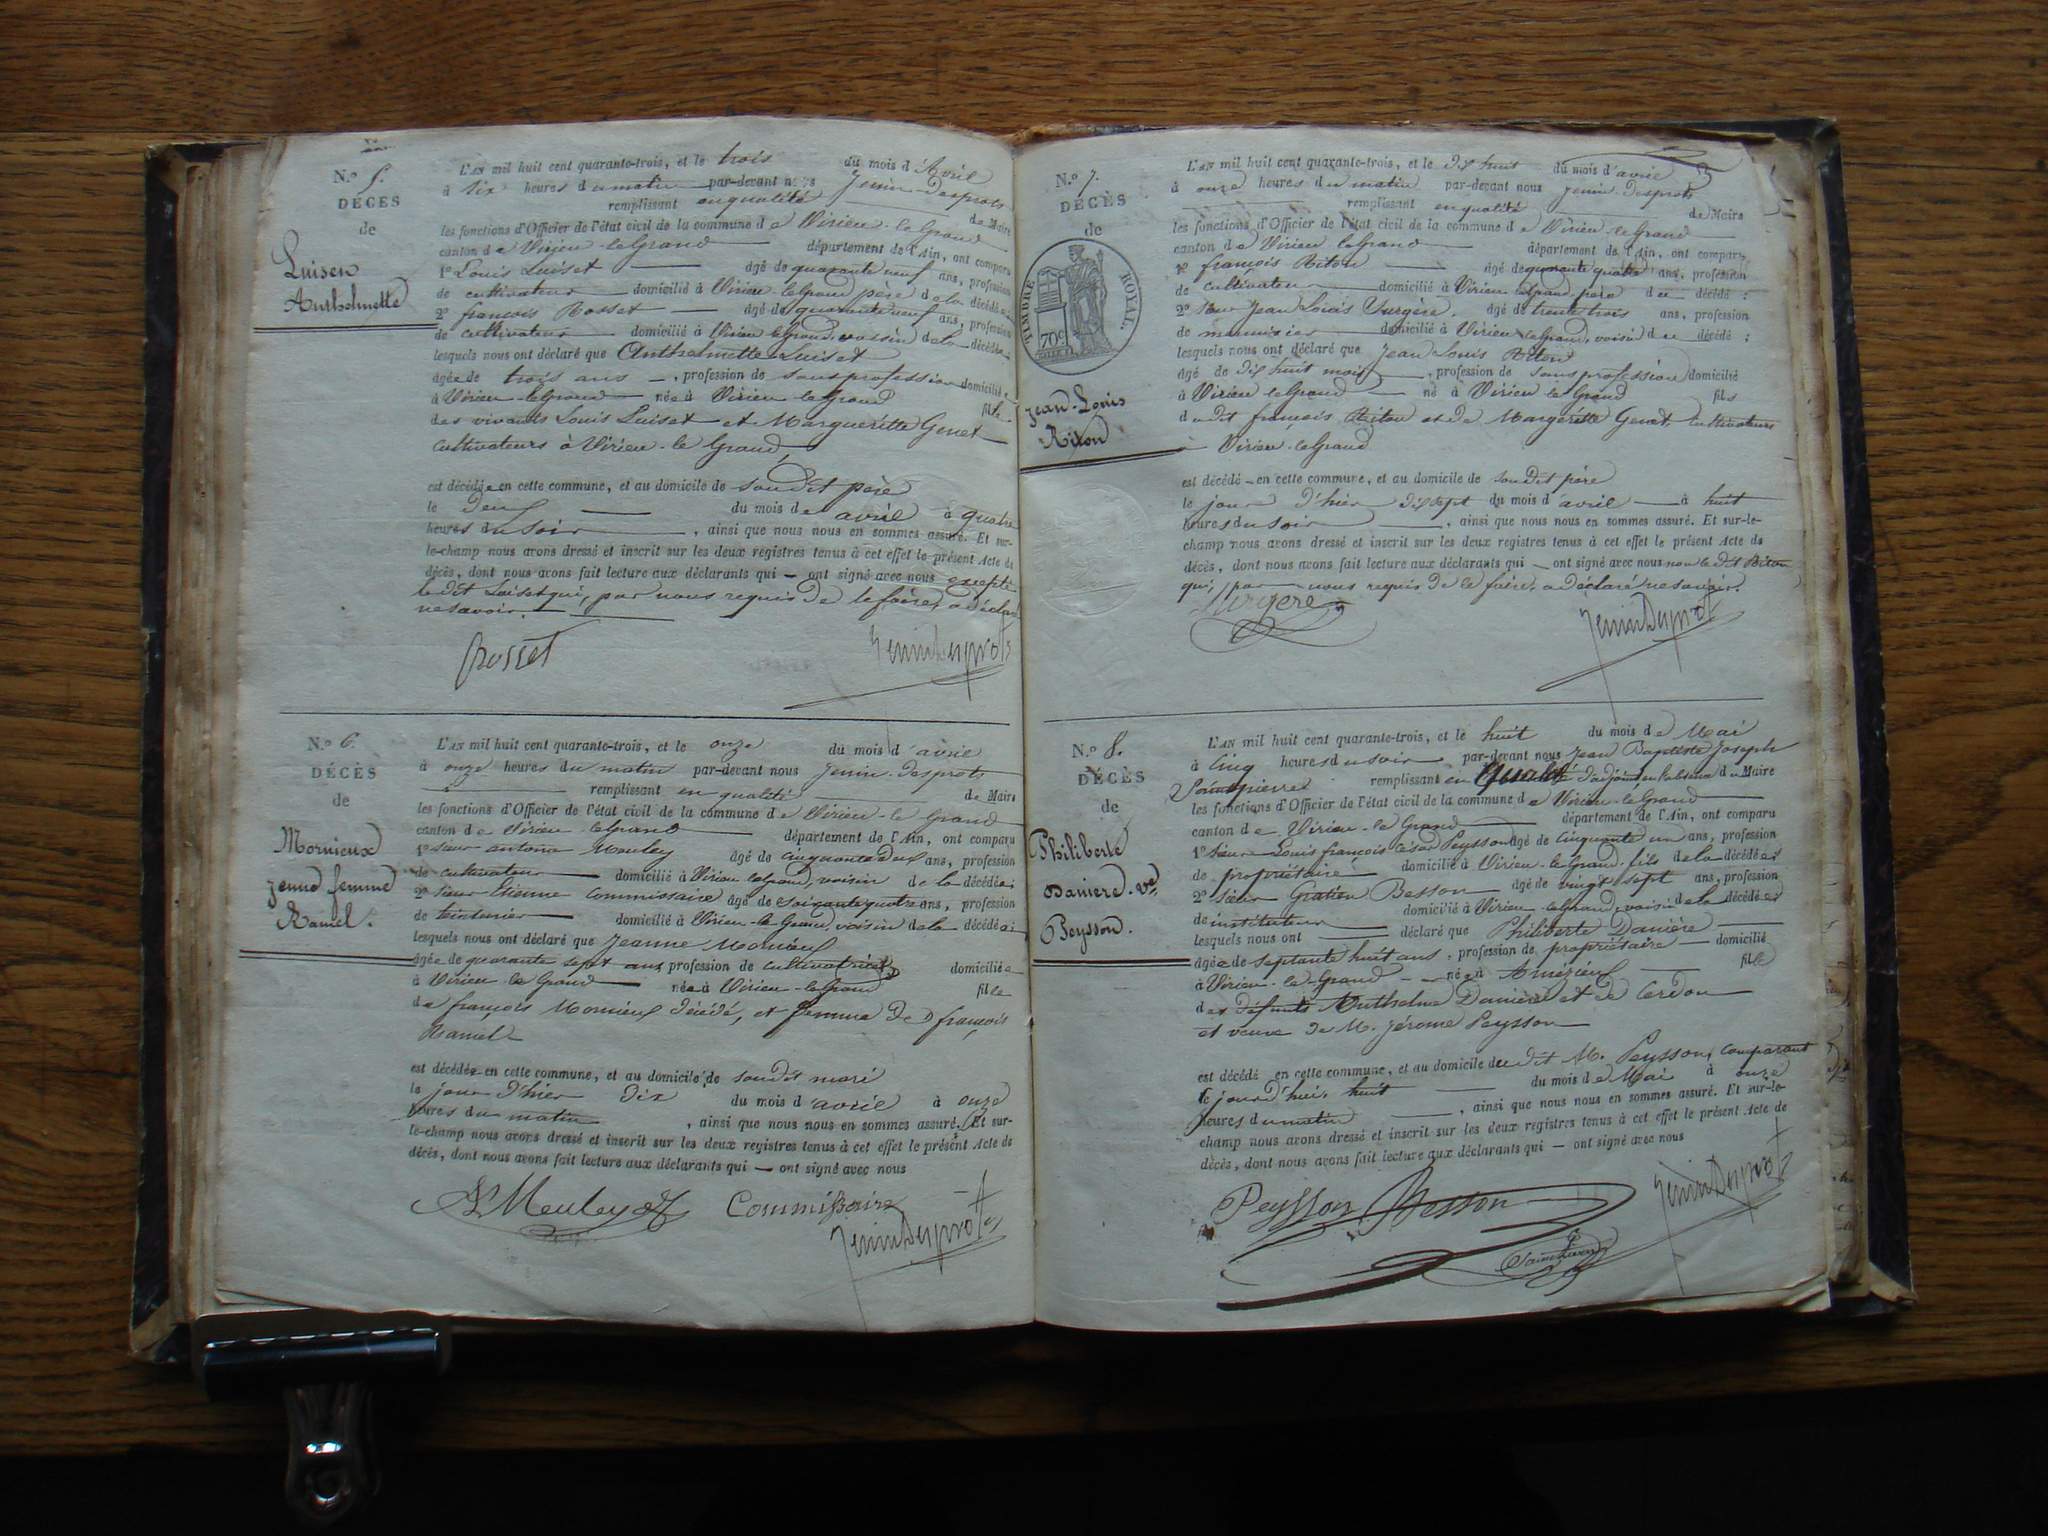 N.º 5.
DÉCÈS
de
Luisen
Anthelmette
L'AN mil huit cent quarante-trois, et le trois du mois d'Avril
à six heures du matin par-devant nous Jenin-Desprots
remplissant en qualité de Maire
les fonctions d'Officier de l'état civil de la commune de Virieu-le-Grand
canton de Virieu-le Grand département de l'Ain, ont comparu
1º Louis Luiset âgé de quarante neuf ans, profession
de cultivateur domicilié à Virieu-le Grand père de la décédée
2º françois Rosset âgé de quarante neuf ans, profession
de cultivateur domicilié à Virieu le Grand, voisin de la décédée
lesquels nous ont déclaré que Anthelmette Luiset
âgée de trois ans, profession de sans profession domiciliée
à Virieu-le Grand née à Virieu le Grand fille
des vivants Louis Luiset et Margueritte Genet
cultivateurs à Virieu-le Grand,
est décédée en cette commune, et au domicile de son dit père
le Deux du mois de avril à quatre
heures du soir, ainsi que nous nous en sommes assuré. Et sur-
le-champ nous avons dressé et inscrit sur les deux registres tenus à cet effet le présent Acte de
décès, dont nous avons fait lecture aux déclarants qui — ont signé avec nous excepté
le dit Luiset qui, par nous requis de le faire, a déclaré
ne savoir.
Rosset JeninDesprots
N.º 6.
DÉCÈS
de
Mornieux
Jenne femme
Ramel.
L'AN mil huit cent quarante-trois, et le onze du mois d'avril
à onze heures du matin par-devant nous Jenin-Desprots
remplissant en qualité de Maire
les fonctions d'Officier de l'état civil de la commune de Virieu-le-Grand
canton de Virieu-le Grand département de l'Ain, ont comparu
1º sieur antoine Meuley âgé de cinquante deux ans, profession
de cultivateur domicilié à Virieu le Grand, voisin de la décédée;
2º sieur Etienne Commissaire âgé de soixante quatre ans, profession
de teinturier domicilié à Virieu-le-Grand, voisin de la décédée;
lesquels nous ont déclaré que Jeanne Mornieux
âgée de quarante sept ans, profession de cultivatrice domiciliée
à Virieu le Grand née à Virieu-le Grand fille
de françois Mornieux décédé, et femme de D françois
Ramel
est décédée en cette commune, et au domicile de son dit mari
le jour d'hier dix du mois d'avril à onze
heures du matin, ainsi que nous nous en sommes assuré. Et sur-
le-champ nous avons dressé et inscrit sur les deux registres tenus à cet effet le présent Acte de
décès, dont nous avons fait lecture aux déclarants qui — ont signé avec nous
Meuley Commissaire
JeninDesprots
N.º 7.
DÉCÈS
de
TIMBRE ROYAL.
70c
Jean-Louis
Riton
L'AN mil huit cent quarante-trois, et le dix huit du mois d'avril
à onze heures du matin par-devant nous Jenin-Desprots
remplissant en qualité de Maire
les fonctions d'Officier de l'état civil de la commune de Virieu-le Grand
canton de Virieu le Grand département de l'Ain, ont comparu
1º françois Riton âgé de quarante quatre ans, profession
de cultivateur domicilié à Virieu le Grand, père du décédé;
2º sieur Jean Louis Surgère. âgé de trente trois ans, profession
de menuisier domicilié à Virieu le Grand, voisin du décédé;
lesquels nous ont déclaré que Jean Louis Riton
âgé de dix huit mois, profession de sans profession domicilié
à Virieu le Grand né à Virieu le Grand fils
du dit françois Riton et de Margéritte Genet, cultivateurs
Virieu-le Grand
est décédé en cette commune, et au domicile de son dit père
le jour d'hier dix sept du mois d'avril à huit
heures du soir, ainsi que nous nous en sommes assuré. Et sur-le-
champ nous avons dressé et inscrit sur les deux registres tenus à cet effet le présent Acte de
décès, dont nous avons fait lecture aux déclarants qui — ont signé avec nous non le dit Riton
qui, par nous requis de le faire, a déclaré ne savoir.
Surgere JeninDesprots
N.º 8.
DÉCÈS
de
Philiberte
Daniere. ve
Peysson.
L'AN mil huit cent quarante-trois, et le huit du mois de Mai
à cinq heures du soir par-devant nous Jean Baptiste Joseph
Saintpierre remplissant en qualité d'adjoint en l'absence du Maire
les fonctions d'Officier de l'état civil de la commune de Virieu-le Grand
canton de Virieu-le Grand département de l'Ain, ont comparu
1º sieur Louis françois César Peysson âgé de cinquante un ans, profession
de propriétaire domicilié à Virieu-le Grand, fils de la décédée;
2º sieur Gratien Besson âgé de vingt sept ans, profession
de instituteur domicilié à Virieu-le Grand, voisin de la décédée;
lesquels nous ont déclaré que Philiberte Danière
âgée de septante huit ans, profession de propriétaire domicilié
à Virieu-le-Grand née à Amérieux fille
des défunts Anthelme Danière et de Cerdon
et veuve de M. Jérome Peysson
est décédé en cette commune, et au domicile du dit M. Peysson, comparant
le jour d'hui, huit du mois de Mai à onze
heures du matin, ainsi que nous nous en sommes assuré. Et sur-le-
champ nous avons dressé et inscrit sur les deux registres tenus à cet effet le présent Acte de
décès, dont nous avons fait lecture aux déclarants qui — ont signé avec nous
Peysson Besson JeninDesprots
Saintpierre